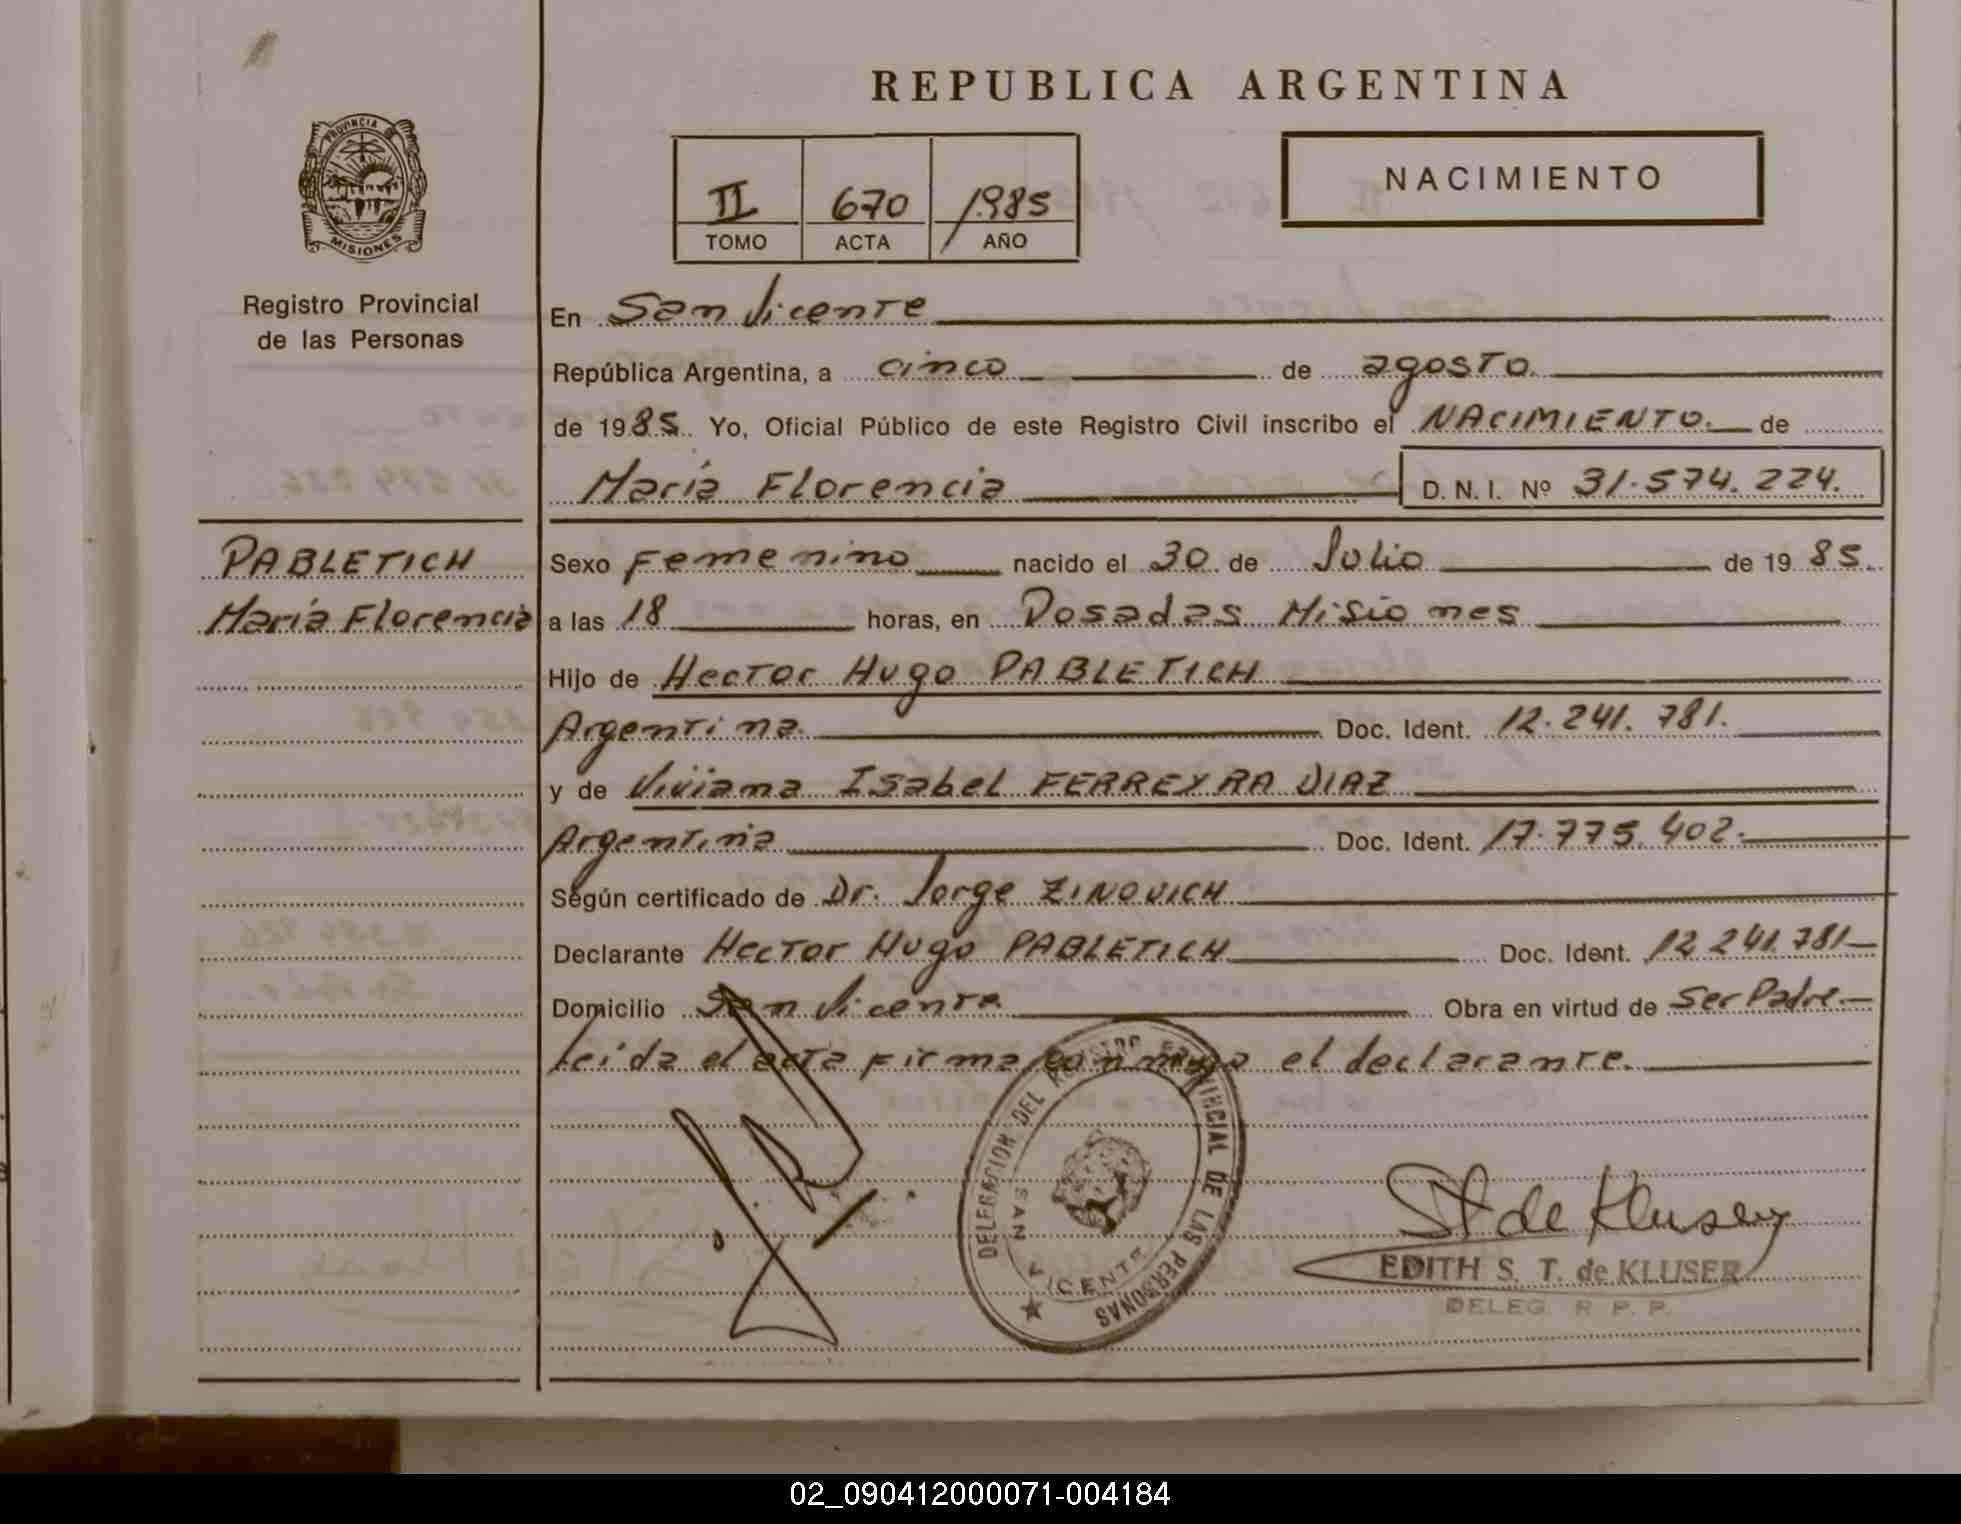 REPUBLICA ARGENTINA
PROVINCIA DE
MISIONES
Registro Provincial
de las Personas
II 670 1985
TOMO ACTA AÑO
NACIMIENTO
En San Vicente
República Argentina, a cinco de agosto
de 1985. Yo, Oficial Público de este Registro Civil inscribo el NACIMIENTO. de
María Florencia D. N. I. Nº 31.574.224.
PABLETICH
María Florencia
Sexo Femenino nacido el 30 de Julio de 1985.
a las 18 horas, en Posadas Misiones
Hijo de Hector Hugo PABLETICH
Argentina. Doc. Ident. 12.241.781.
y de Viviana Isabel FERREYRA DIAZ
Argentina Doc. Ident. 17.775.402.
Según certificado de Dr. Jorge ZINOVICH
Declarante Hector Hugo PABLETICH Doc. Ident. 12 241.781
Domicilio San Vicente. Obra en virtud de Ser Padre.
Leída el acta firma conmigo el declarante.
DELEGACION DEL REGISTRO PROVINCIAL DE LAS PERSONAS
SAN VICENTE
St de Kluser
EDITH S. T. de KLUSER
DELEG. R. P. P.
02_090412000071-004184